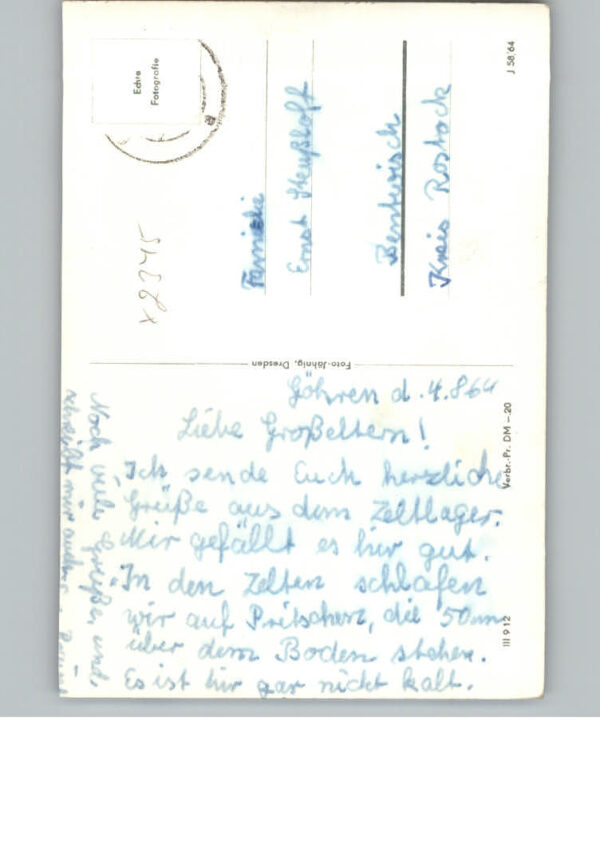 Göhren d. 4.8 64
Liebe Großeltern!
Ich sende Euch herzliche
Grüße aus dem Zeltlager.
Mir gefällt es hier gut.
In den Zelten schlafen
wir auf Pritschen, die 50cm
über dem Boden stehen.
Es ist hir gar nicht kalt.
Noch viele Grüße und
schreibt mir
Familie
Ernst
Bentwisch
Kreis Rostock
Echte
Fotografie
x 8345
Foto-Jähnig, Dresden
J 58/64
Verbr.-Pr. DM -.20
III 9 12